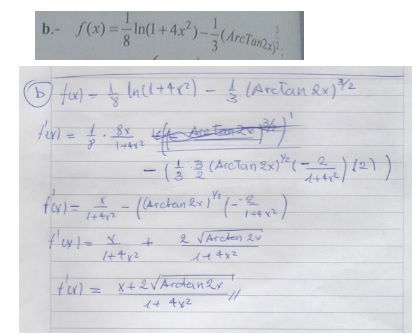 b.- f(x) = 1/8 ln(1 + 4x²) − 1/3 (ArcTan2x)^3/2.
b) f(x) = 1/8 ln(1+4x²) − 1/3 (Arctan 2x)^3/2
f'(x) = 1/8 · 8x/1+4x²
− (1/3 · 3/2 (ArcTan 2x)^1/2 (− 2/1+4x²) (2))
f'(x) = x/1+4x² − ((Arctan 2x)^1/2 (− 2/1+4x²)
f'(x) = x/1+4x² + 2 √Arctan 2x/1+4x²
f'(x) = x+2√Arctan2x/1+4x² //